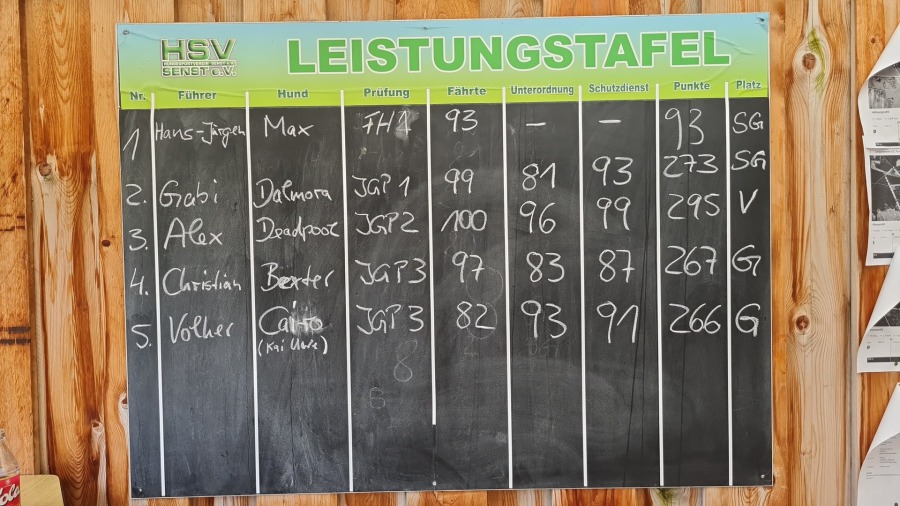 HSV
HUNDESPORTVEREIN SENST e.V.
SENST e.V.
LEISTUNGSTAFEL
Nr. Führer Hund Prüfung Fährte Unterordnung Schutzdienst Punkte Platz
1 Hans-Jürgen Max FH1 93 – – 93 SG
2. Gabi Dalmora IGP 1 99 81 93 273 SG
3. Alex Deadpool IGP 2 100 96 99 295 V
4. Christian Bexter IGP 3 97 83 87 267 G
5. Volker Cairo IGP 3 82 93 91 266 G
(Kai Uwe)